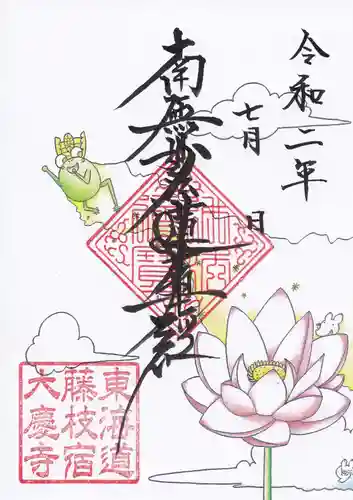 令和二年
七月 日
南無妙法蓮華経
東海道
藤枝宿
大慶寺